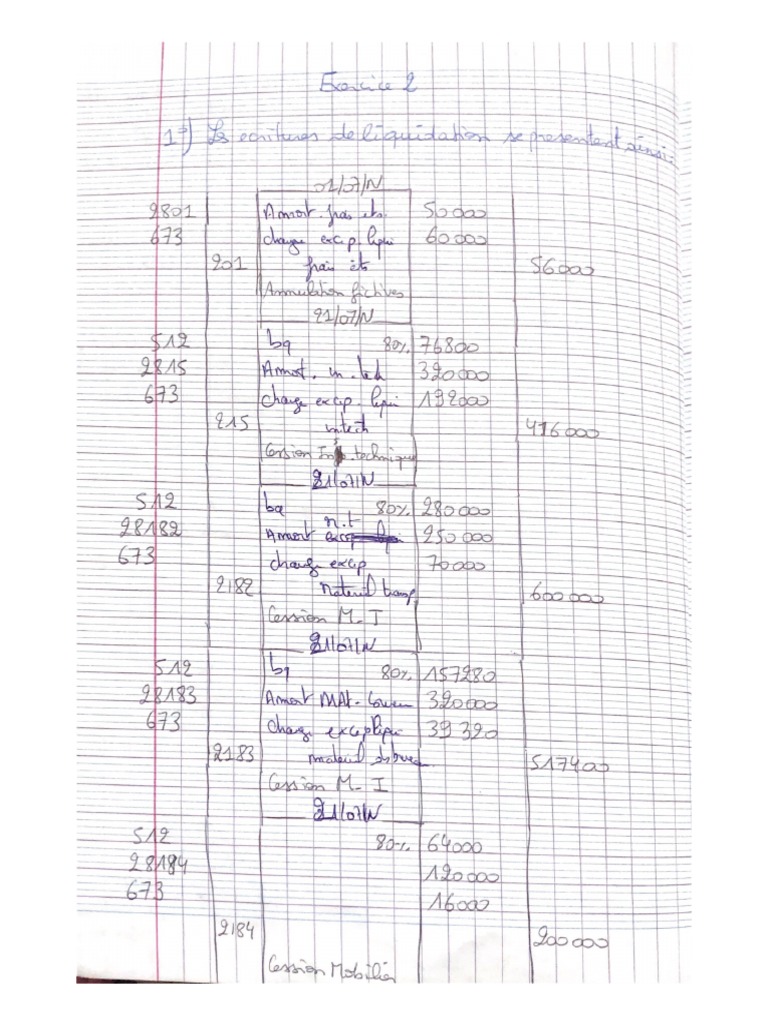 Exercice 2
1°) Les ecritures de liquidation se presentent ainsi:
01/07/N
2801 Amort. frais ets. 50 000
673 charge excep. liqui 60 000
201 frais ets 56 000
Annulation fictives
21/07/N
512 bq 80% 76800
2815 Amort. in. tech 320 000
673 charge excep. liqui 192000
215 intech 416 000
Cession Ins. technique
21/07/N
512 bq 80% 280 000
28182 Amort m.t 250 000
673 charge excep 70 000
2182 Materiel transp 600 000
Cession M. T
21/07/N
512 bq 80% 157280
28183 Amort MAt. 320000
673 charge excep liqui 39 320
2183 materiel de bureau 517400
Cession M- I
21/07/N
512 80% 64000
28184 120 000
673 16 000
2184 200 000
Cession Mobilier